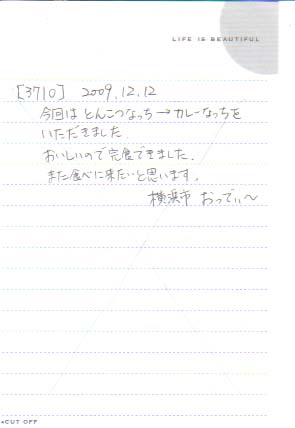 LIFE IS BEAUTIFUL
[3710] 2009.12.12
今回は とんこつなっち→カレーなっちを
いただきました.
おいしいので完食できました.
また食べに来たいと思います。
横浜市 おっでぃ〜
CUT OFF